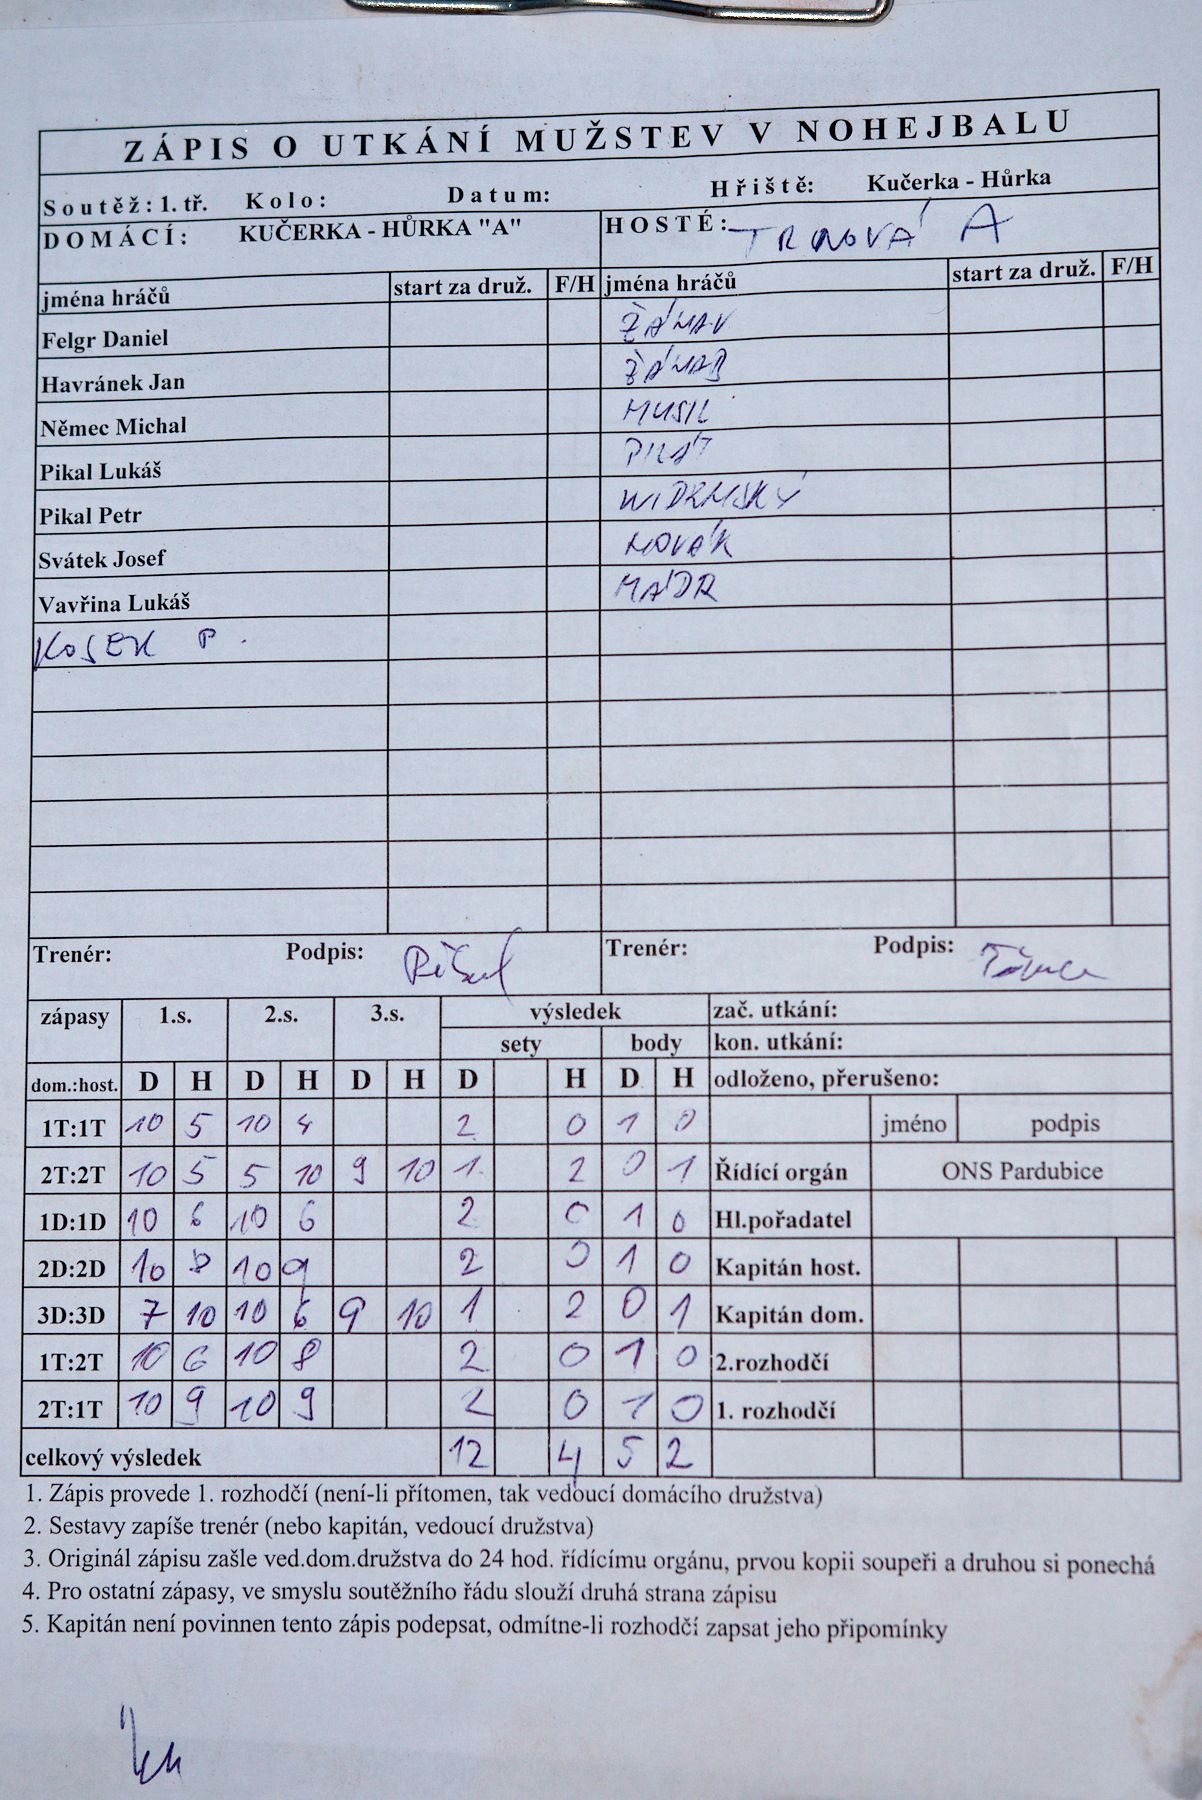 ZÁPIS O UTKÁNÍ MUŽSTEV V NOHEJBALU
Soutěž: 1. tř. Kolo: Datum: Hřiště: Kučerka - Hůrka
DOMÁCÍ: KUČERKA - HŮRKA "A" HOSTÉ: TRNOVÁ A
jména hráčů start za druž. F/H jména hráčů start za druž. F/H
Felgr Daniel
Havránek Jan
Němec Michal MUSIL
Pikal Lukáš PILÁT
Pikal Petr
Svátek Josef NOVÁK
Vavřina Lukáš MÁDR
KOSEK P.
Trenér: Podpis: Trenér: Podpis:
zápasy 1.s. 2.s. 3.s. výsledek zač. utkání:
sety body kon. utkání:
dom.:host. D H D H D H D H D H odloženo, přerušeno:
1T:1T 10 5 10 4 2 0 1 0 jméno podpis
2T:2T 10 5 5 10 9 10 1 2 0 1 Řídící orgán ONS Pardubice
1D:1D 10 6 10 6 2 0 1 0 Hl.pořadatel
2D:2D 10 8 10 9 2 0 1 0 Kapitán host.
3D:3D 7 10 10 6 9 10 1 2 0 1 Kapitán dom.
1T:2T 10 6 10 8 2 0 1 0 2.rozhodčí
2T:1T 10 9 10 9 2 0 1 0 1. rozhodčí
celkový výsledek 12 4 5 2
1. Zápis provede 1. rozhodčí (není-li přítomen, tak vedoucí domácího družstva)
2. Sestavy zapíše trenér (nebo kapitán, vedoucí družstva)
3. Originál zápisu zašle ved.dom.družstva do 24 hod. řídícímu orgánu, prvou kopii soupeři a druhou si ponechá
4. Pro ostatní zápasy, ve smyslu soutěžního řádu slouží druhá strana zápisu
5. Kapitán není povinnen tento zápis podepsat, odmítne-li rozhodčí zapsat jeho připomínky